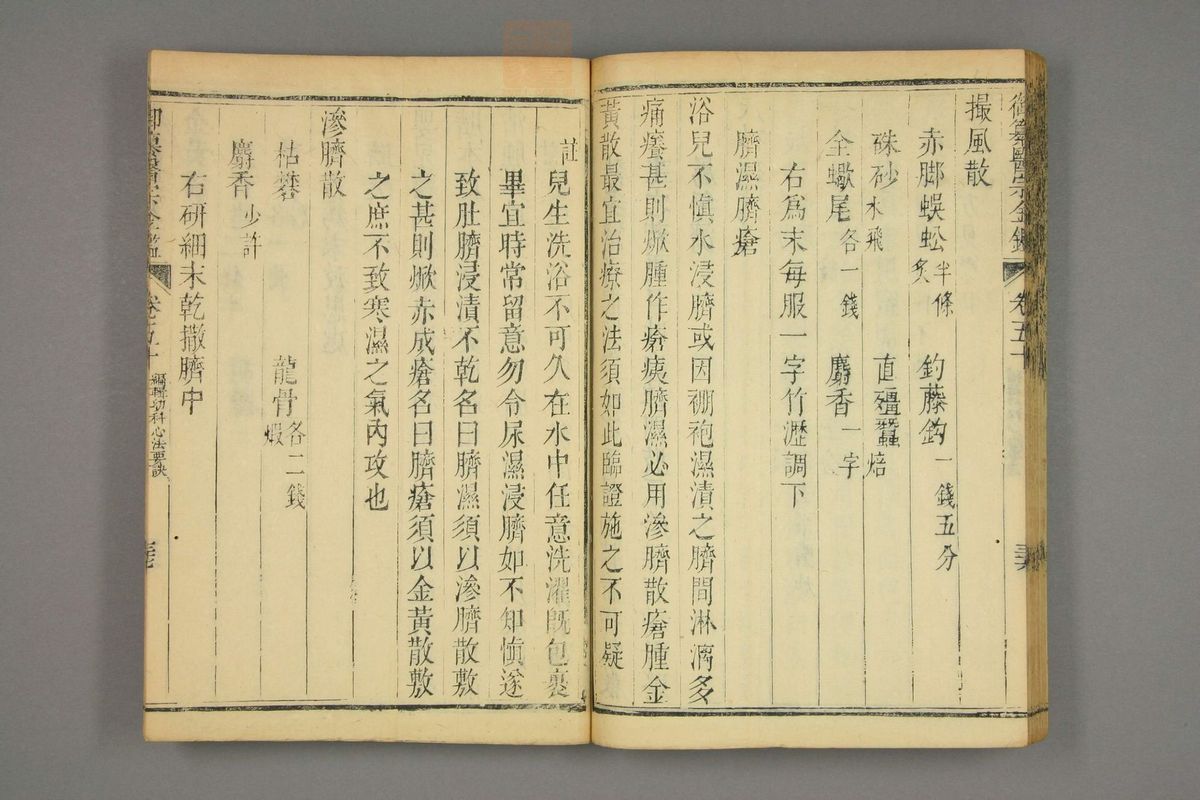 撮風散
赤脚蜈蚣半條炙 釣藤鈎一錢五分
硃砂水飛 直殭蠶焙
全蠍尾各一錢 麝香一字
右爲末每服一字竹瀝調下
臍濕臍瘡
浴兒不愼水浸臍或因襁袍濕漬之臍間淋漓多
痛癢甚則焮腫作瘡痍臍濕必用滲臍散瘡腫金
黃散最宜治療之法須如此臨證施之不可疑
註 兒生洗浴不可久在水中任意洗濯既包裹
畢宜時常留意勿令尿濕浸臍如不知愼遂
致肚臍浸漬不乾名曰臍濕須以滲臍散敷
之甚則焮赤成瘡名曰臍瘡須以金黃散敷
之庶不致寒濕之氣內攻也
滲臍散
枯礬 龍骨各二錢煅
麝香少許
右硏細末乾撒臍中
卷五十 編輯幼科心法要訣